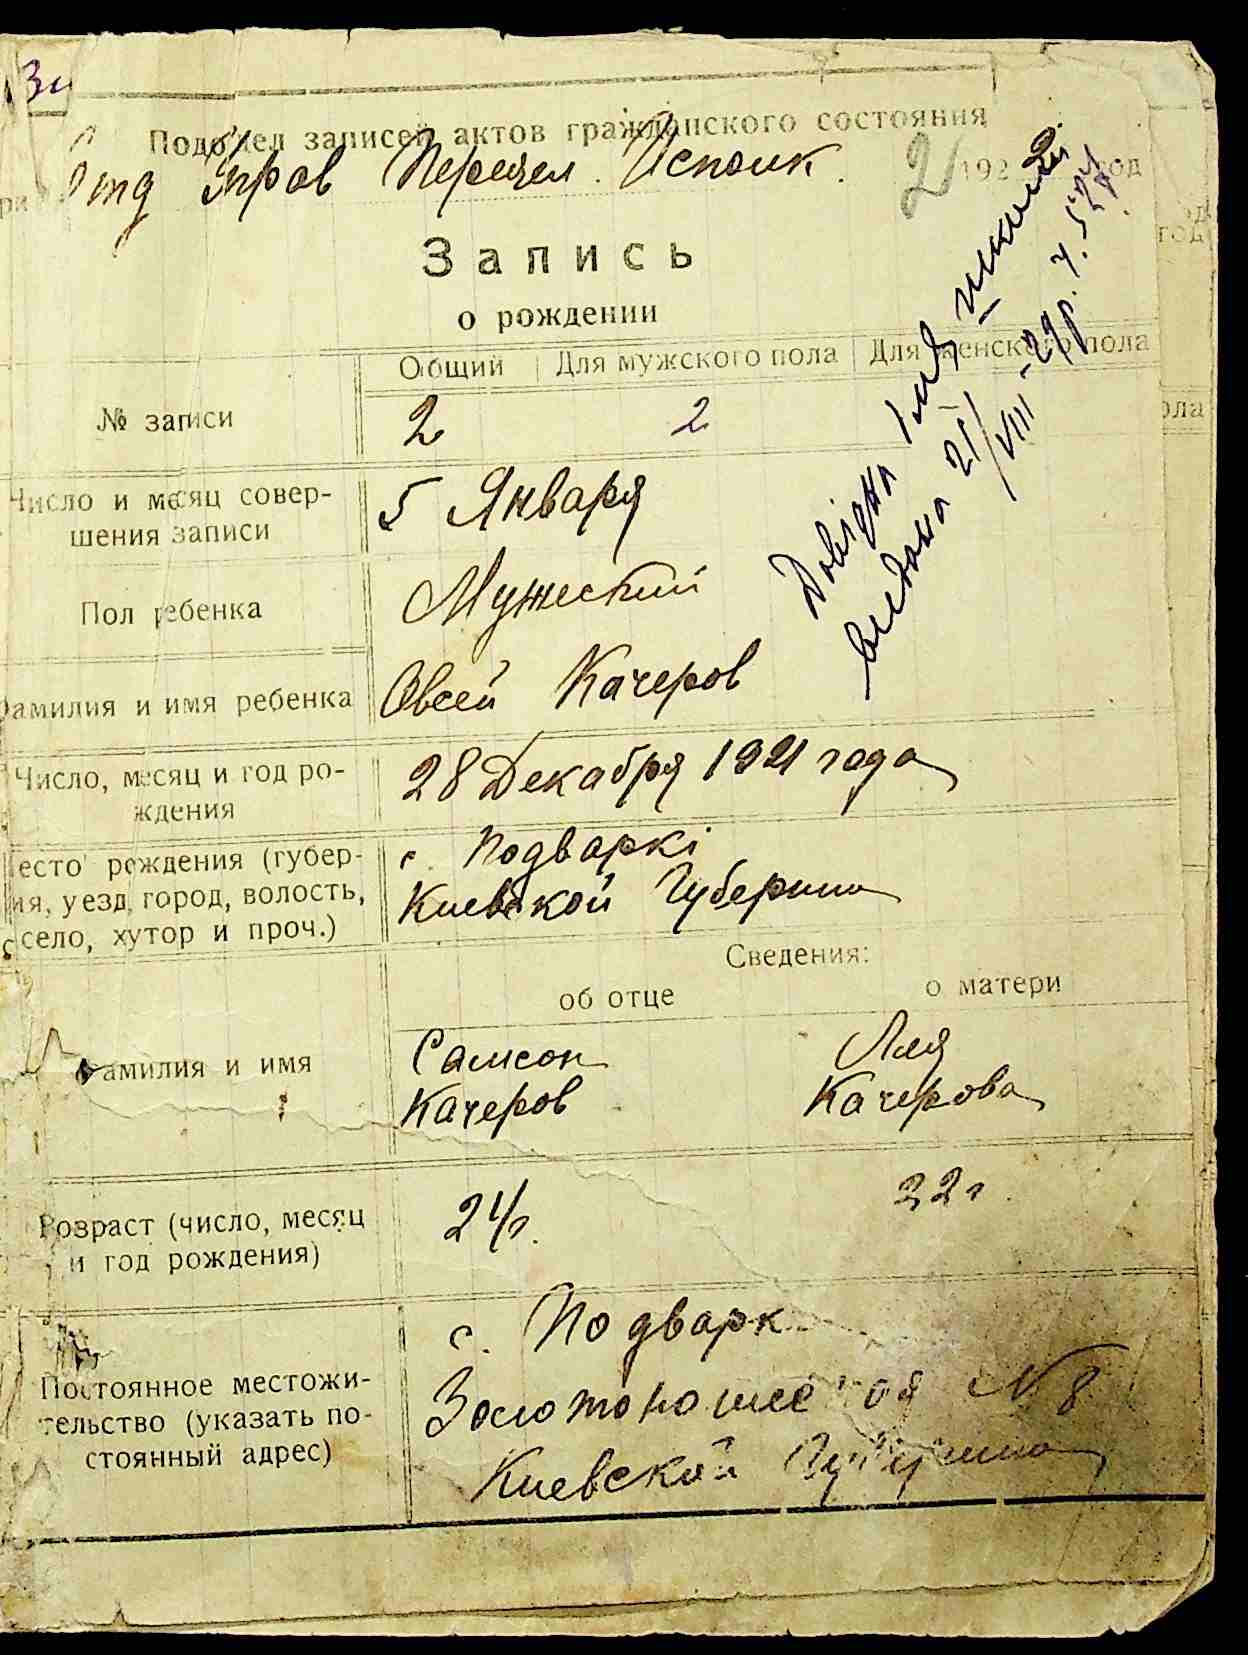 Подотдел записей актов гражданского состояния
Отд Управ Исполк. 2 192 год
Запись
о рождении
Общий Для мужского пола Для женского пола
№ записи 2 2
Число и месяц совер-
шения записи 5 Января
Пол ребенка Мужеский
Фамилия и имя ребенка Овсей Качеров
Число, месяц и год ро-
ждения 28 Декабря 1921 года
Место рождения (губер-
ния, уезд, город, волость,
село, хутор и проч.)
с. Подваркі
Киевской Губернии
Сведения:
об отце о матери
Фамилия и имя
Самсон Лия
Качеров Качерова
Возраст (число, месяц
и год рождения)
24 г. 22 г.
Постоянное местожи-
тельство (указать по-
стоянный адрес)
с. Подварк
Золотоношской № 8
Киевской Губернии
Довідка для школи
видана 21/VIII-29р. ч. 528